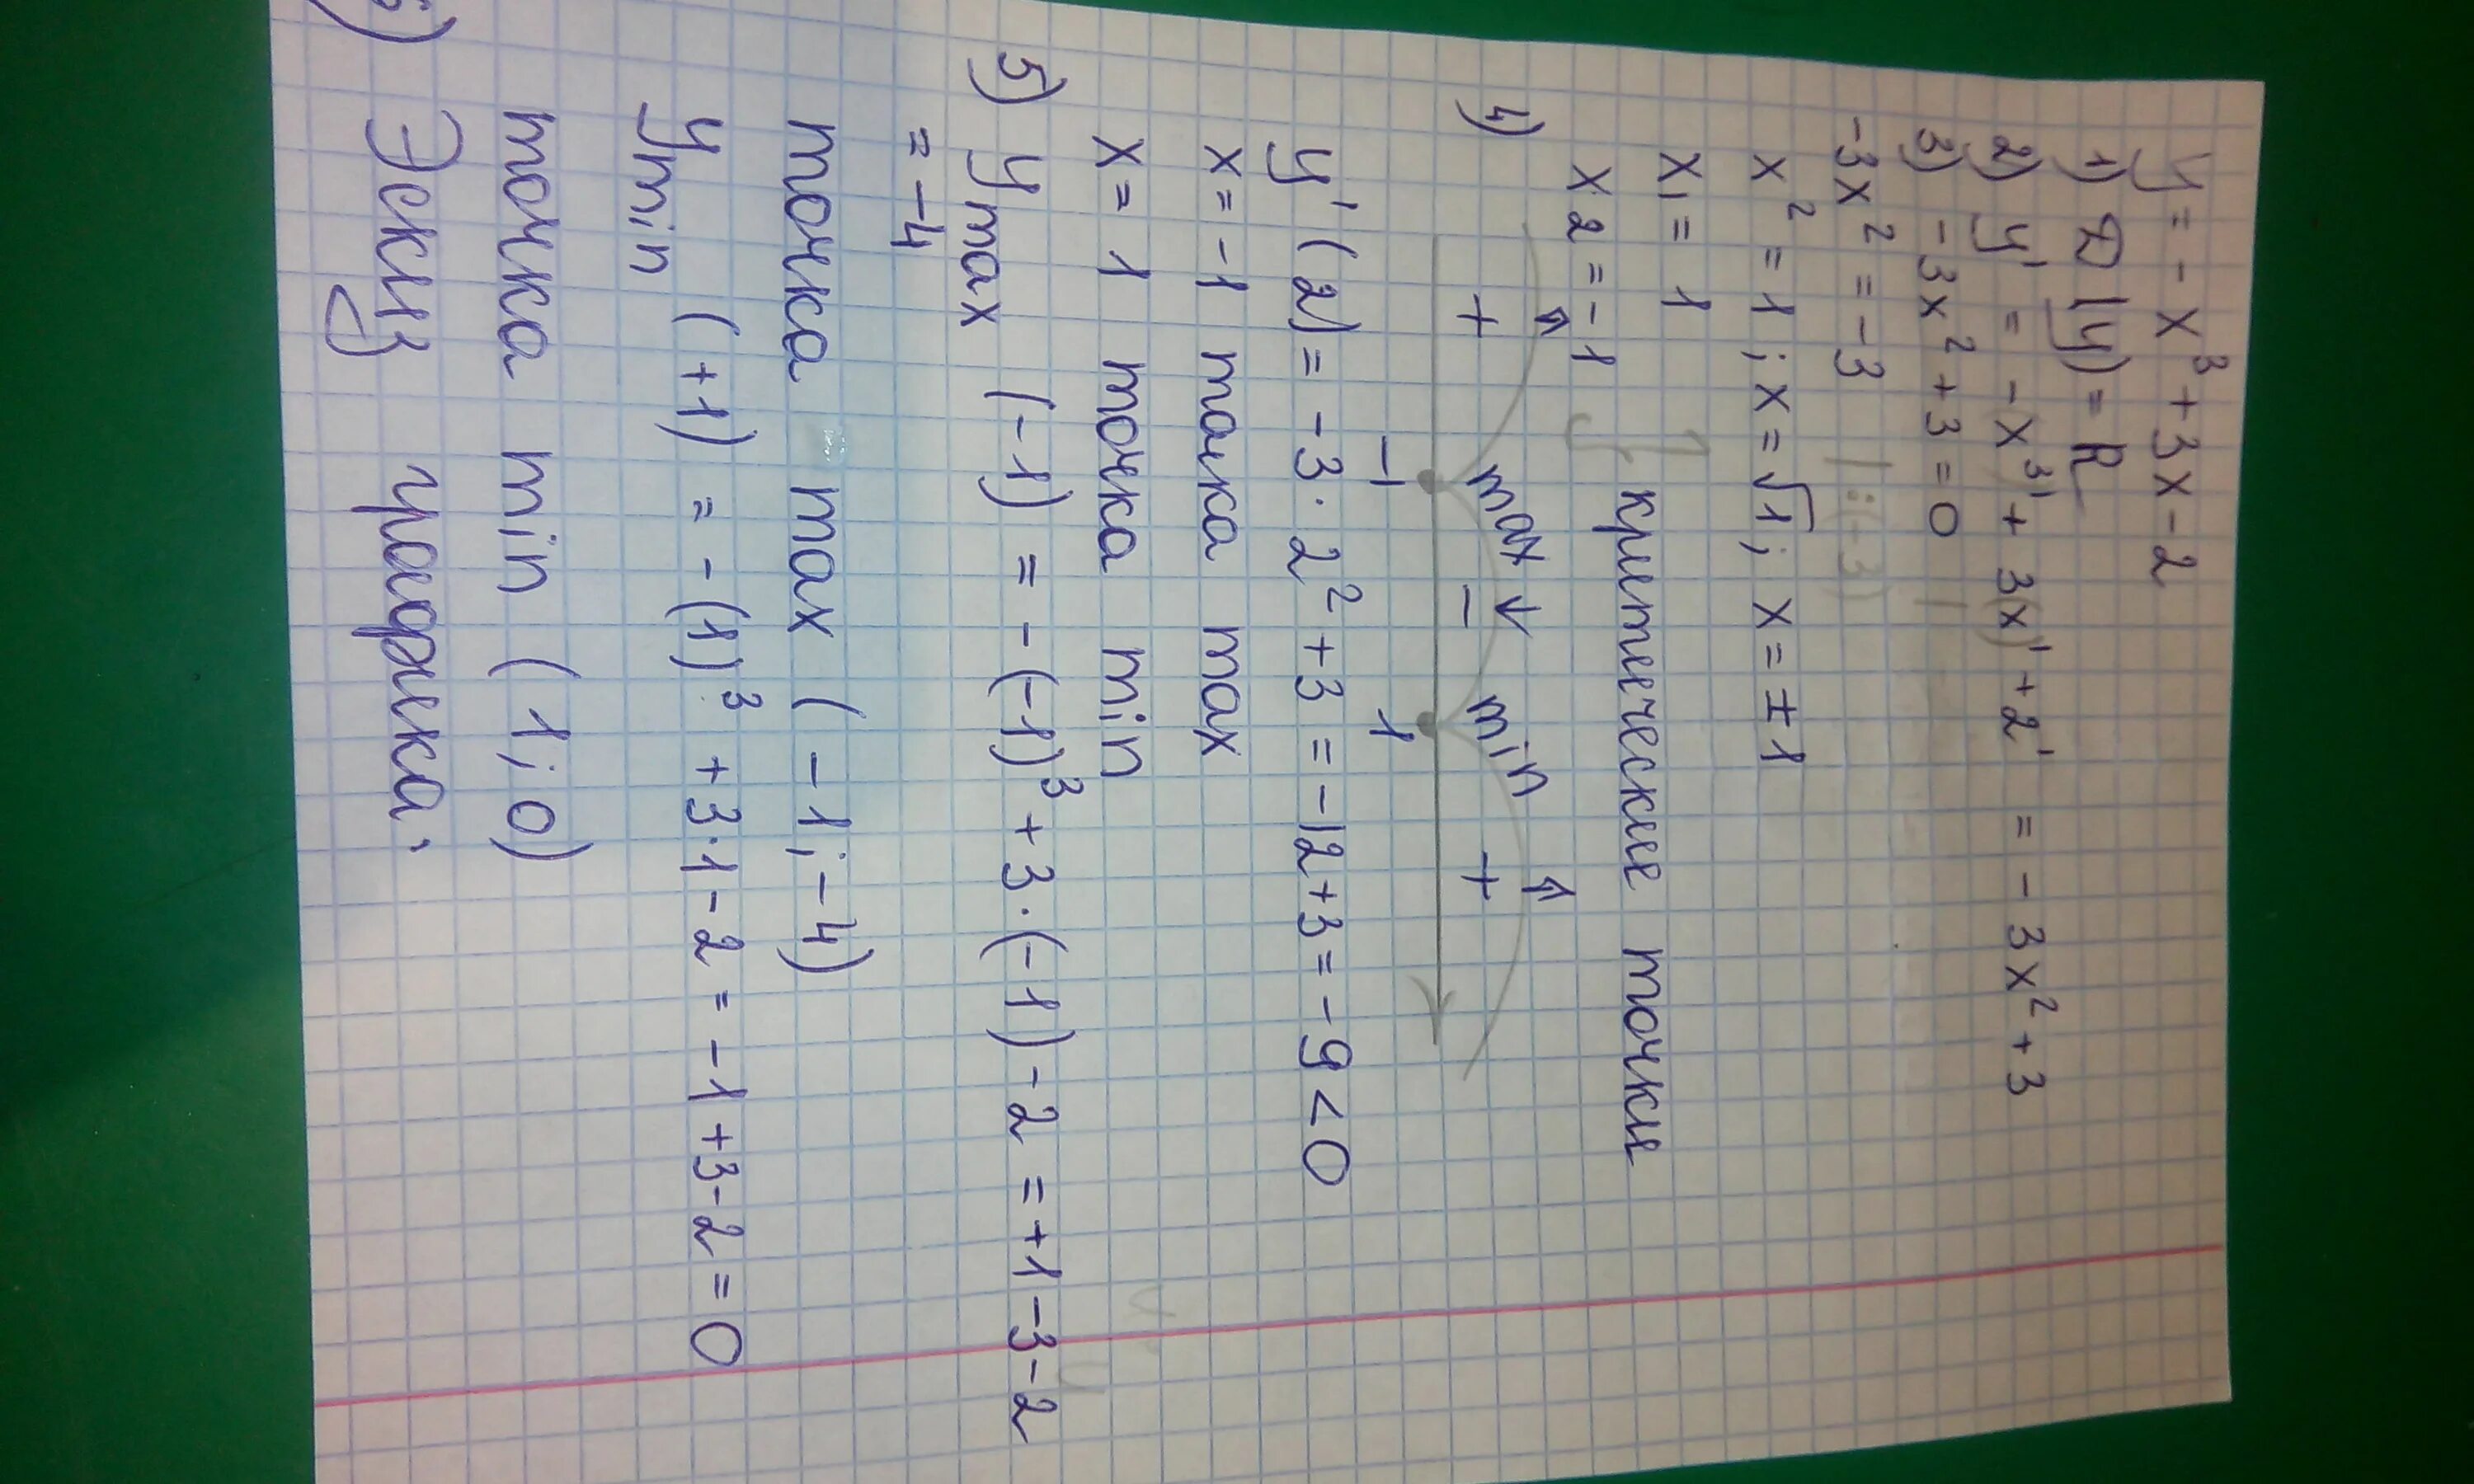 y = - x³ + 3x - 2
1) D(y) = R
2) y' = - x³' + 3(x)' + 2' = - 3x² + 3
3) - 3x² + 3 = 0
-3x² = -3 | :(-3)
x² = 1; x = √1; x = ± 1
x₁ = 1
критические точки
x₂ = -1
4) + max ↓ - min +
-1 1
y'(2) = -3 · 2² + 3 = -12 + 3 = -9 < 0
x = -1 точка max
x = 1 точка min
5) y max (-1) = - (-1)³ + 3 · (-1) - 2 = +1 - 3 - 2
= -4
точка max (-1; -4)
y min (+1) = - (1)³ + 3·1 - 2 = -1 + 3 - 2 = 0
точка min (1; 0)
6) Эскиз графика: